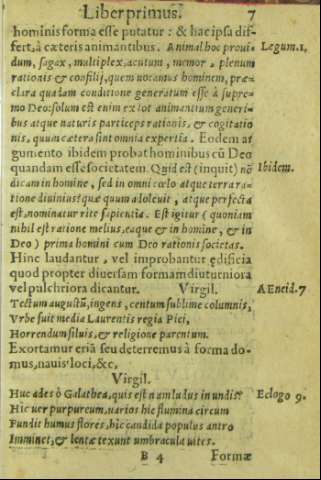 Liber primus. 7
hominis forma esse putatur : & hac ipsa dif-
fert à cæteris animantibus. Animal hoc proui- Legum.1,
dum, sagax, multiplex, acutum, memor, plenum
rationis & consilij, quem uocamus hominem, præ-
clara quadam conditione generatum esse à supre-
mo Deo: solum est enim ex tot animantium generi-
bus atque naturis particeps rationis, & cogitatio
nis, quum cætera sint omnia expertia. Eodem ar
gumento ibidem probat hominibus cū Deo
quandam esse societatem. Quid est (inquit) nō Ibidem.
dicam in homine, sed in omni cœlo atque terra ra-
tione diuinius? quæ quum adoleuit, atque perfecta
est, nominatur rite sapientia. Est igitur (quoniam
nihil est ratione melius, eaque & in homine, & in
Deo) prima homini cum Deo rationis societas.
Hinc laudantur, vel improbantur ędificia
quod propter diuersam formam diuturniora
vel pulchriora dicantur. Virgil. AEneid.7
Tectum augustū, ingens, centum sublime columnis,
Vrbe fuit media Laurentis regia Pici,
Horrendum siluis, & religione parentum.
Exortamur etiā seu deterremus à forma do-
mus, nauis loci, &c,
Virgil.
Huc ades ò Galathea, quis est nam ludus in undis? Eclogo 9.
Hic uer purpureum, uarios hic flumina circum
Fundit humus flores, hic candida populus antro
Imminet, & lentæ texunt umbracula uites.
B 4 Formæ